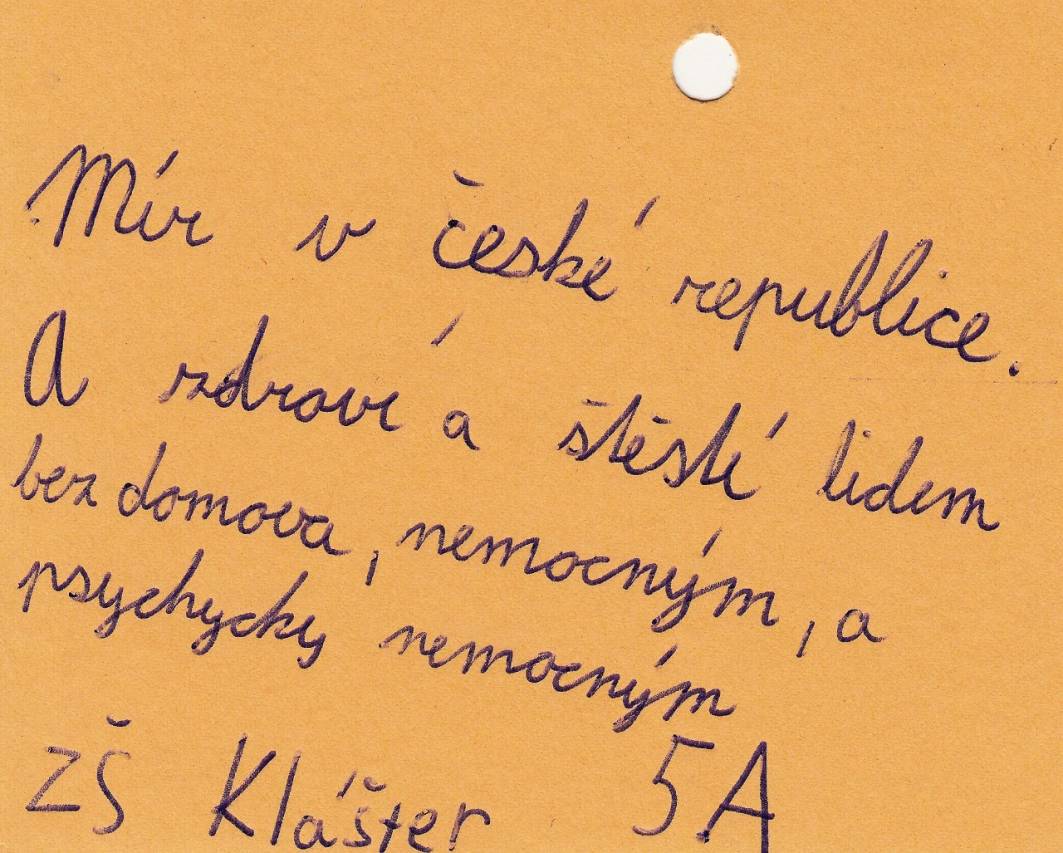 Mír v české republice.
A zdraví a štěstí lidem
bez domova, nemocným, a
psychycky nemocným
ZŠ Klášter 5A